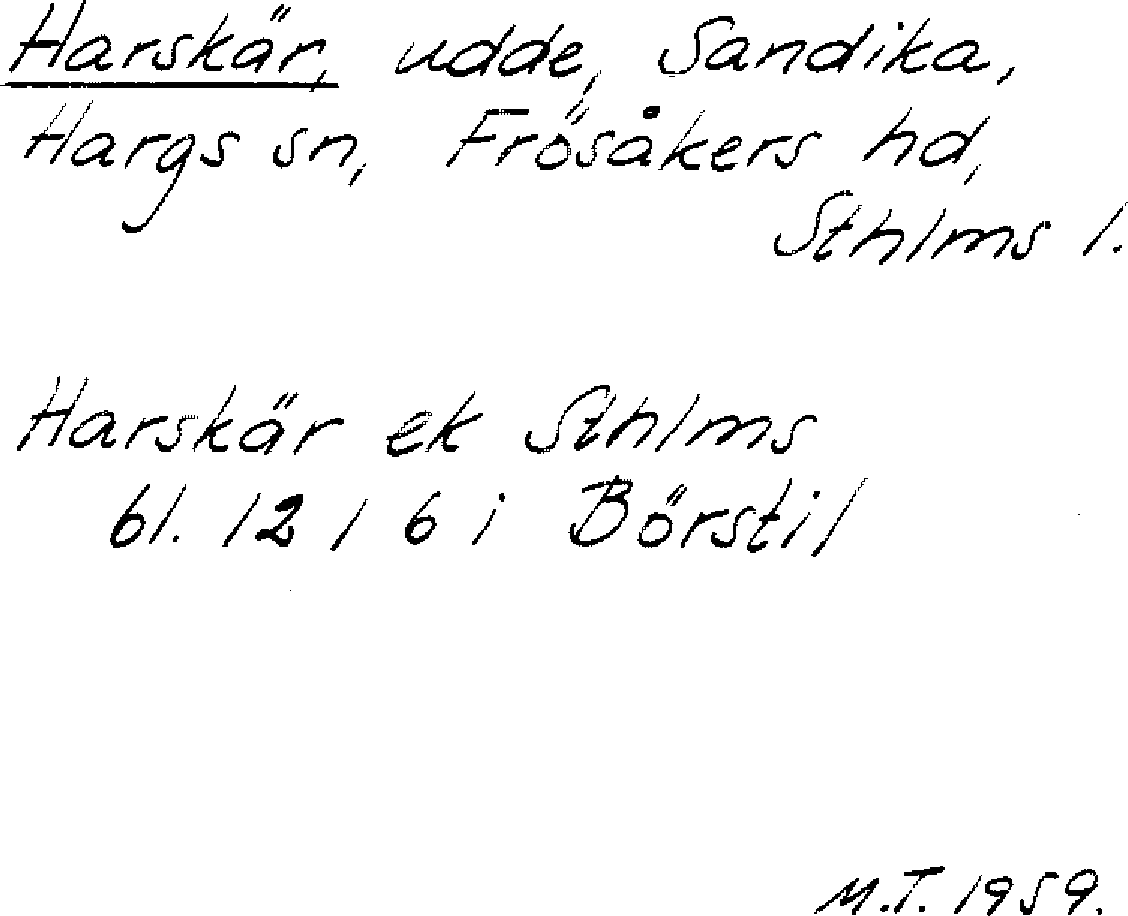 Harskär, udde, Sandika,
Hargs sn, Frösåkers hd,
Sthlms l.
Harskär ek Sthlms
bl. 12 I 6 i Börstil
M.T. 1959.